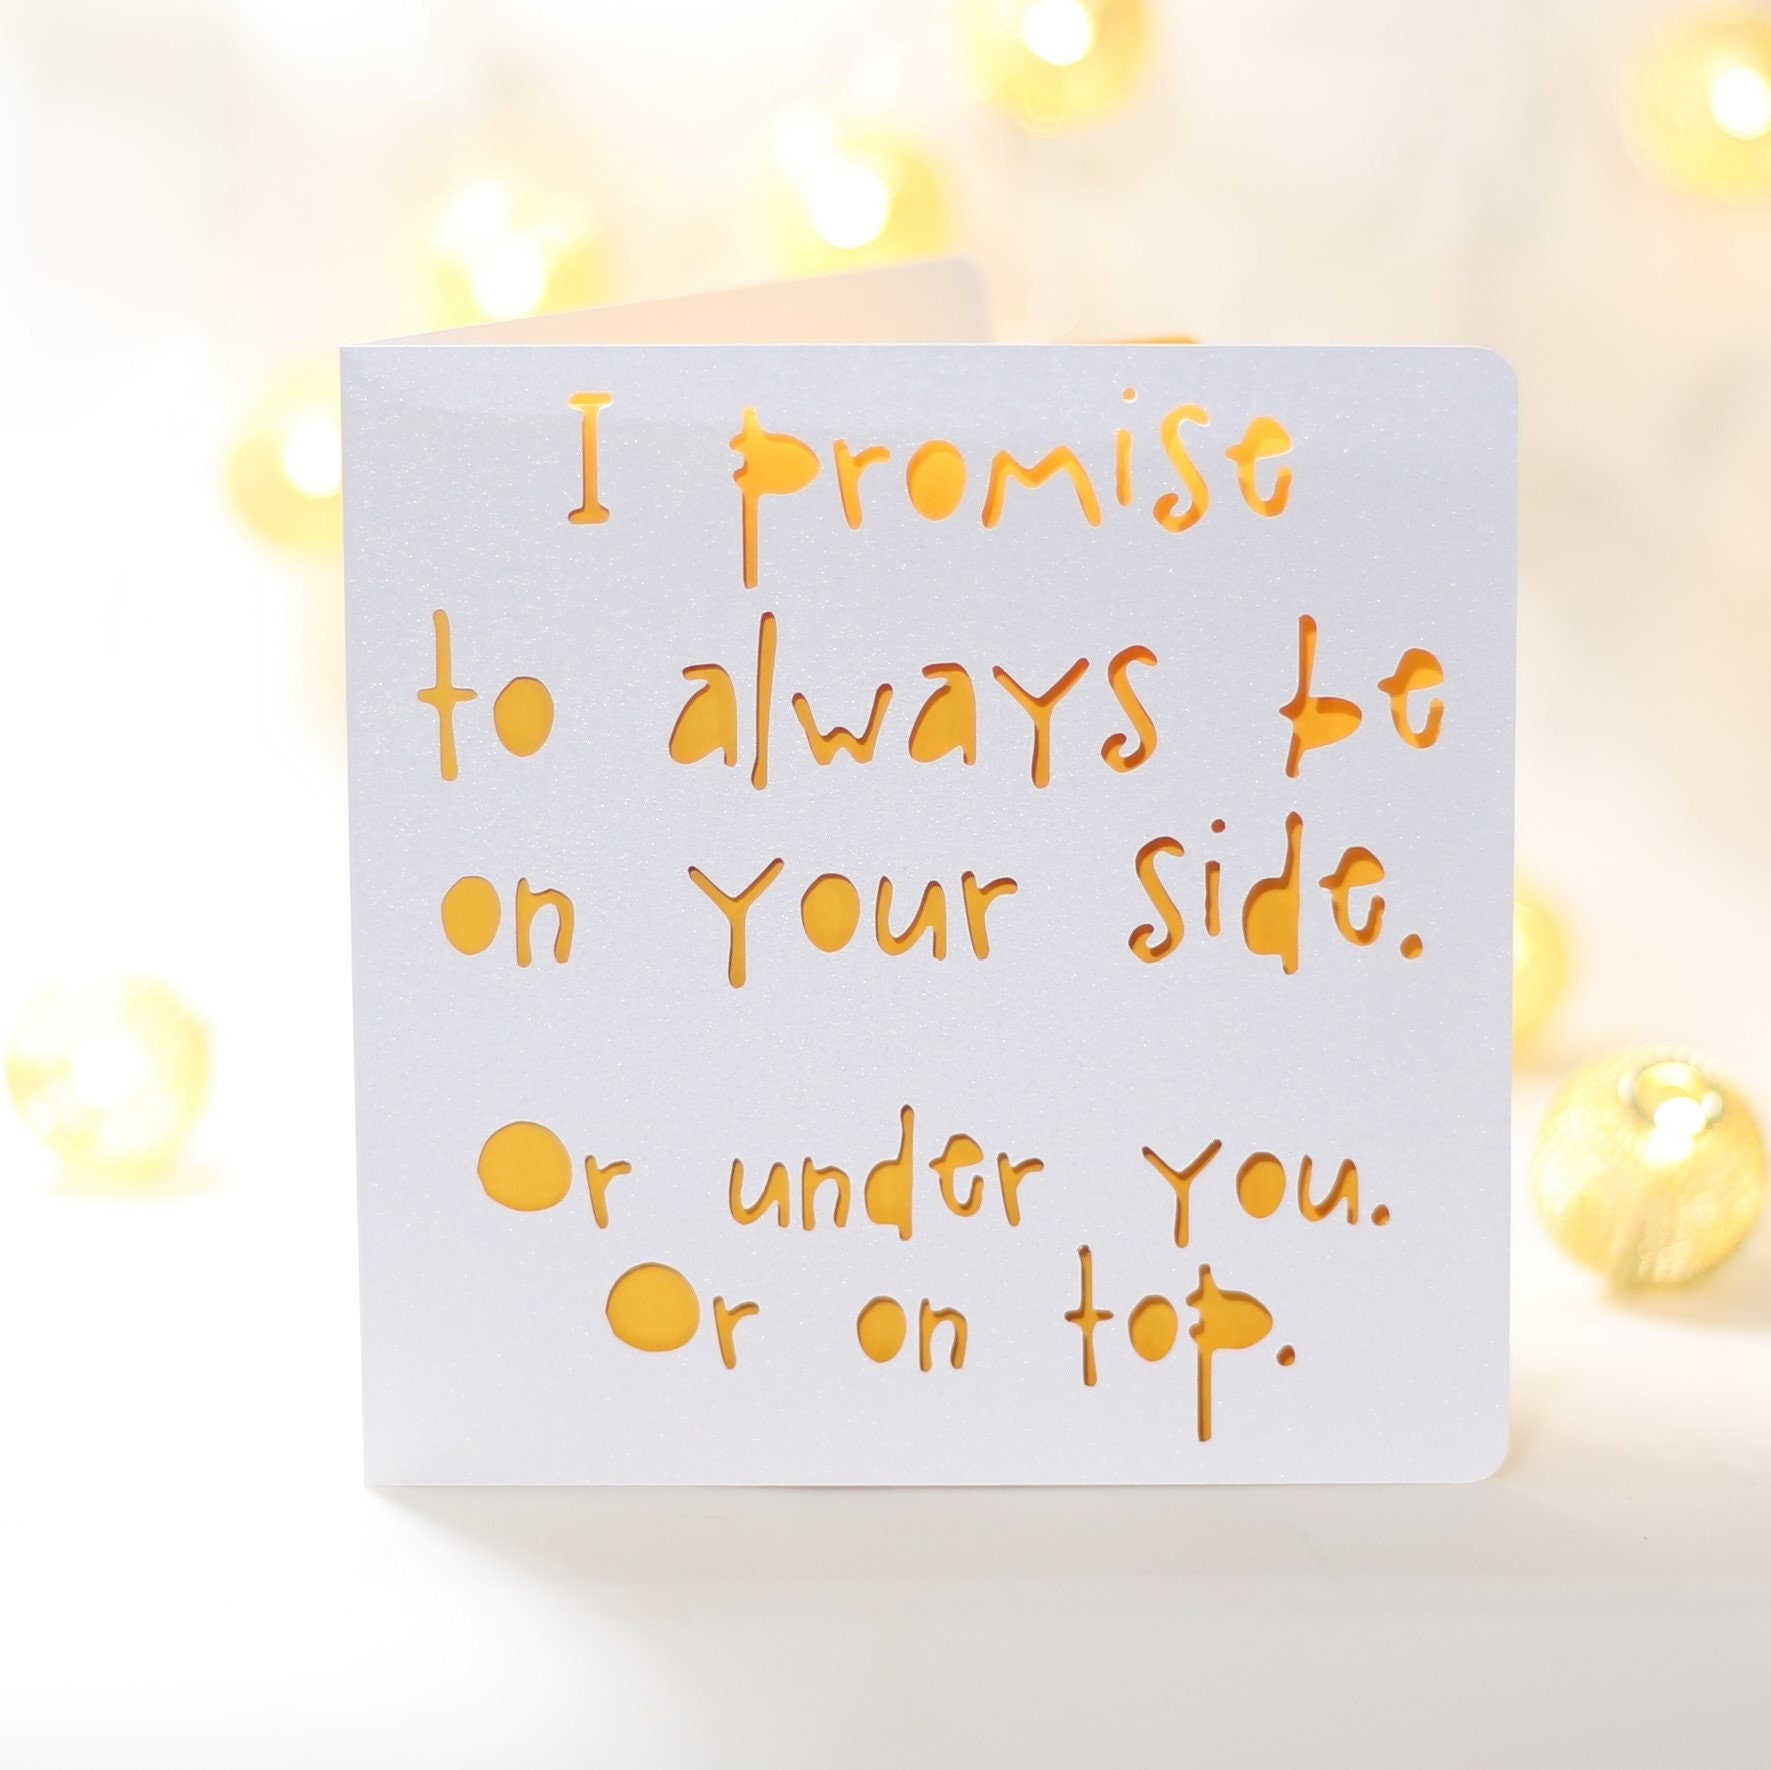 I promise
to always be
on your side.
Or under you.
Or on top.